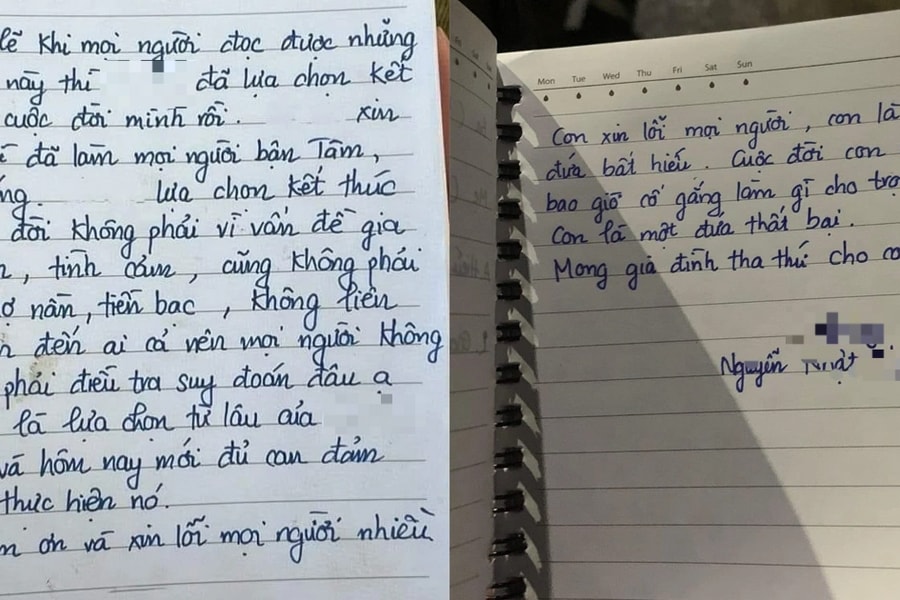 lẽ khi mọi người đọc được những
này thì đã lựa chọn kết
cuộc đời mình rồi. xin
đã làm mọi người bận tâm,
lựa chọn kết thúc
đời không phải vì vấn đề gia
, tình cảm, cũng không phải
nần, tiền bạc, không liên
đến ai cả nên mọi người không
phải điều tra suy đoán đâu ạ
là lựa chọn từ lâu của
và hôm nay mới đủ can đảm
thực hiện nó.
ơn và xin lỗi mọi người nhiều
Mon Tue Wed Thu Fri Sat Sun
Con xin lỗi mọi người, con là
đứa bất hiếu. Cuộc đời con
bao giờ cố gắng làm gì cho
Con là một đứa thất bại.
Mong gia đình tha thứ cho
Nguyễn